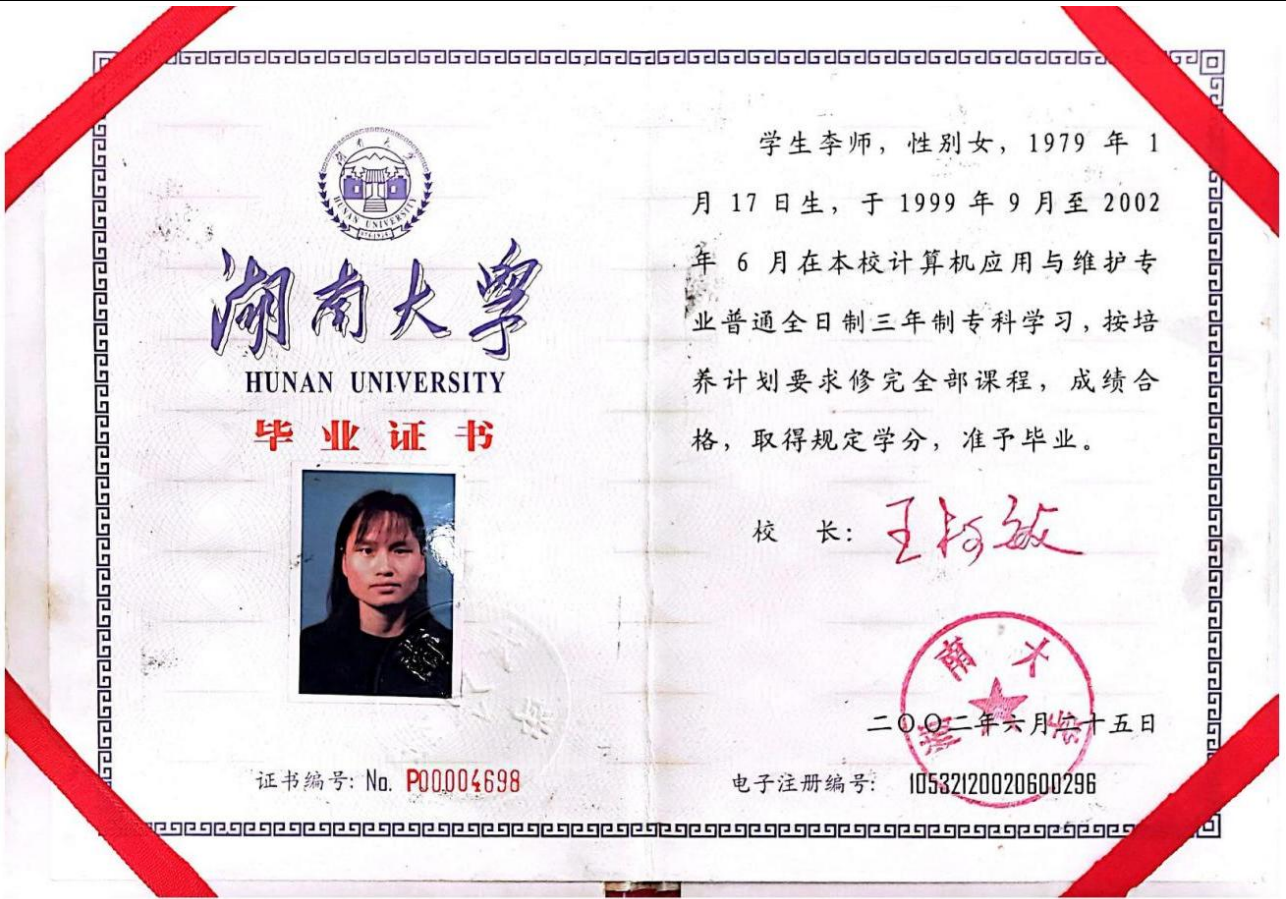 湖南大學
HUNAN UNIVERSITY
湖南大学
HUNAN UNIVERSITY
毕业证书
证书编号: No. P00004698
学生李师，性别女，1979 年 1
月 17 日生，于 1999 年 9 月至 2002
年 6 月在本校计算机应用与维护专
业普通全日制三年制专科学习，按培
养计划要求修完全部课程，成绩合
格，取得规定学分，准予毕业。
校 长: 王柯敏
湖南大学
二〇〇二年六月二十五日
电子注册编号: 10532120020600296